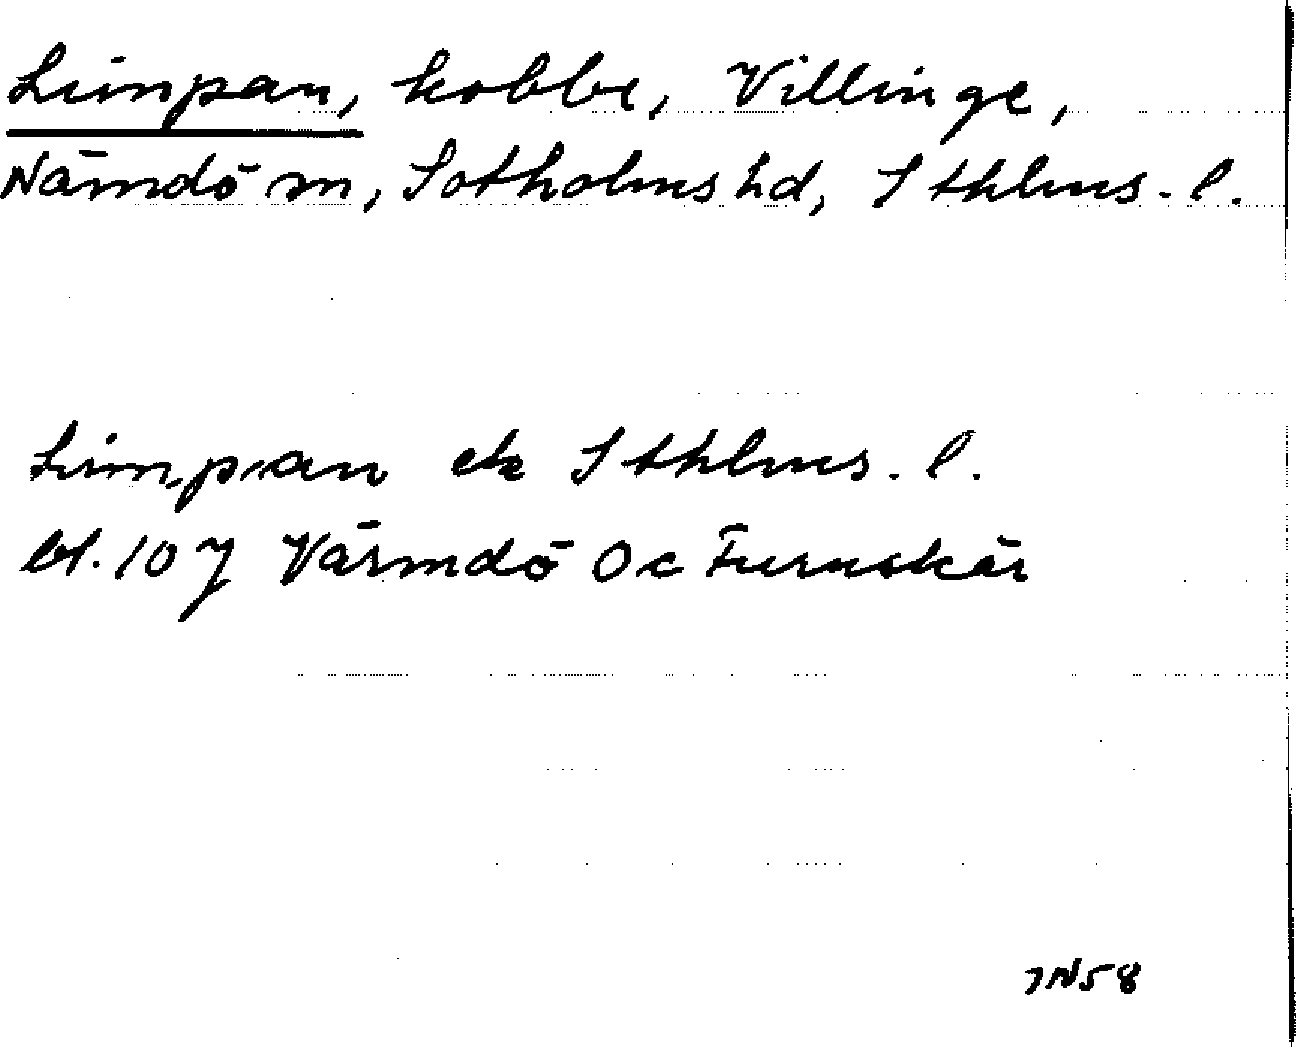 Limpan, kobbe, Villinge,
Nämdö sn, Sotholms hd, Sthlms. l.
Limpan ek Sthlms. l.
bl. 107 Värmdö Oc Furuskär
JN58